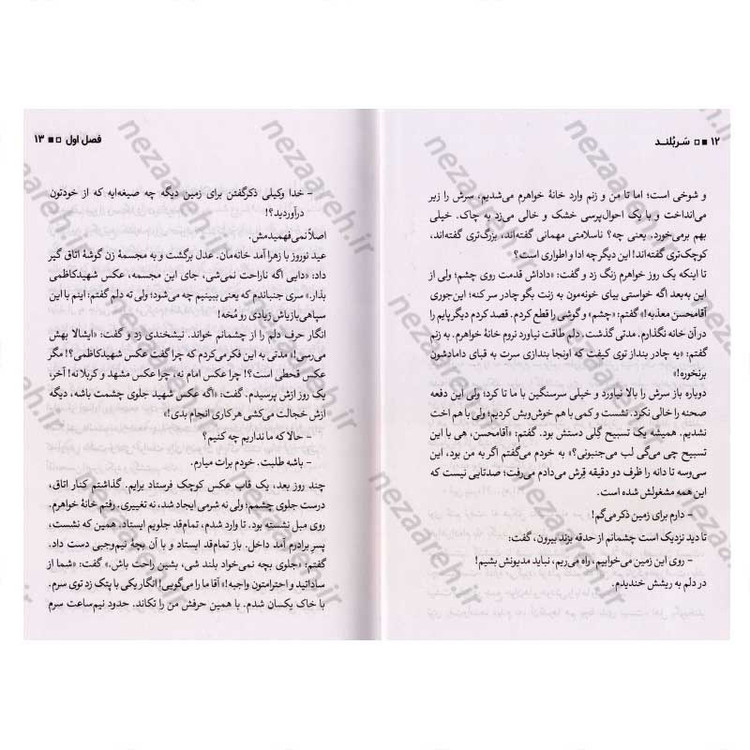 ۱۲ سربلند
و شوخی است؛ اما تا من و زنم وارد خانهٔ خواهرم می‌شدیم، سرش را زیر
می‌انداخت و با یک احوال‌پرسی خشک و خالی می‌زد به چاک. خیلی
بهم برمی‌خورد. یعنی چه؟ ناسلامتی مهمانی گفته‌اند، بزرگ‌تری گفته‌اند،
کوچک‌تری گفته‌اند! این دیگر چه ادا و اطواری است؟
تا اینکه یک روز خواهرم زنگ زد و گفت: «داداش قدمت روی چشم؛ ولی از
این به‌بعد اگه خواستی بیای خونه‌مون به زنت بگو چادر سر کنه؛ این‌جوری
آقامحسن معذبه!» گفتم: «چشم» و گوشی را قطع کردم. قصد کردم دیگر پایم را
در آن خانه نگذارم. مدتی گذشت. دلم طاقت نیاورد نروم خانهٔ خواهرم. به زنم
گفتم: «یه چادر بنداز توی کیفت که اونجا بندازی سرت به قبای دامادشون
برنخوره!»
دوباره باز سرش را بالا نیاورد و خیلی سرسنگین با ما تا کرد؛ ولی این دفعه
صحنه را خالی نکرد. نشست و کمی با هم خوش‌وبش کردیم؛ ولی با هم اخت
نشدیم. همیشه یک تسبیح گِلی دستش بود. گفتم: «آقامحسن، هی با این
تسبیح چی می‌گی لب می‌جنبونی؟» به زعم خودم گفتم اگر به من بود، این
سی‌وسه تا دانه را ظرف دو دقیقه قِرِش می‌دادم می‌رفت؛ صدتایی نیست که
این همه مشغولش شده است.
– دارم برای زمین ذکر می‌گم!
تا دید نزدیک است چشمانم از حدقه بزند بیرون، گفت:
– روی این زمین می‌خوابیم، راه می‌ریم، نباید مدیونش بشیم!
در دلم به ریشش خندیدم.
فصل اول ۱۳
– خدا وکیلی ذکرگفتن برای زمین دیگه چه صیغه‌ایه که از خودتون
درآوردید؟!
اصلاً نمی‌فهمیدمش.
عید نوروز با زهرا آمد خانه‌مان. عدل برگشت و به مجسمهٔ زن گوشهٔ اتاق گیر
داد: «دایی اگه ناراحت نمی‌شی، جای این مجسمه، عکس شهیدکاظمی
بذار.» سری جنباندم که یعنی ببینیم چه می‌شود؛ ولی ته دلم گفتم: اینم با این
سپاهی‌بازیاش زیادی رو مُخه!
انگار حرف دلم را از چشمانم خواند. نیشخندی زد و گفت: «ایشالا بهش
می‌رسی!» مدتی به این فکر می‌کردم که چرا گفت عکس شهیدکاظمی؟! مگر
عکس قحطی است؟! چرا عکس امام نه، چرا عکس مشهد و کربلا نه! آخر،
یک روز ازش پرسیدم. گفت: «اگه عکس شهید جلوی چشمت باشه، دیگه
ازش خجالت می‌کشی هر کاری انجام بدی!»
– حالا که ما نداریم چه کنیم؟
– باشه طلبت. خودم برات میارم.
چند روز بعد، یک قاب عکس کوچک فرستاد برایم. گذاشتم کنار اتاق،
درست جلوی چشمم؛ ولی نه شرمی ایجاد شد، نه تغییری. رفتم خانهٔ خواهرم.
روی مبل نشسته بود. تا وارد شدم، تمام‌قد جلویم ایستاد. همین که نشست،
پسر برادرم آمد داخل. باز تمام‌قد ایستاد و با آن بچهٔ نیم‌وجبی دست داد.
گفتم: «جلوی بچه نمی‌خواد بلند شی، بشین راحت باش.» گفت: «شما از
ساداتید و احترامتون واجبه!» آقا ما را می‌گویی! انگار یکی با پتک زد توی سرم.
با خاک یکسان شدم. با همین حرفش من را تکاند. حدود نیم‌ساعت سرم
nezaareh.ir
nezaareh.ir
nezaareh.ir
nezaareh.ir